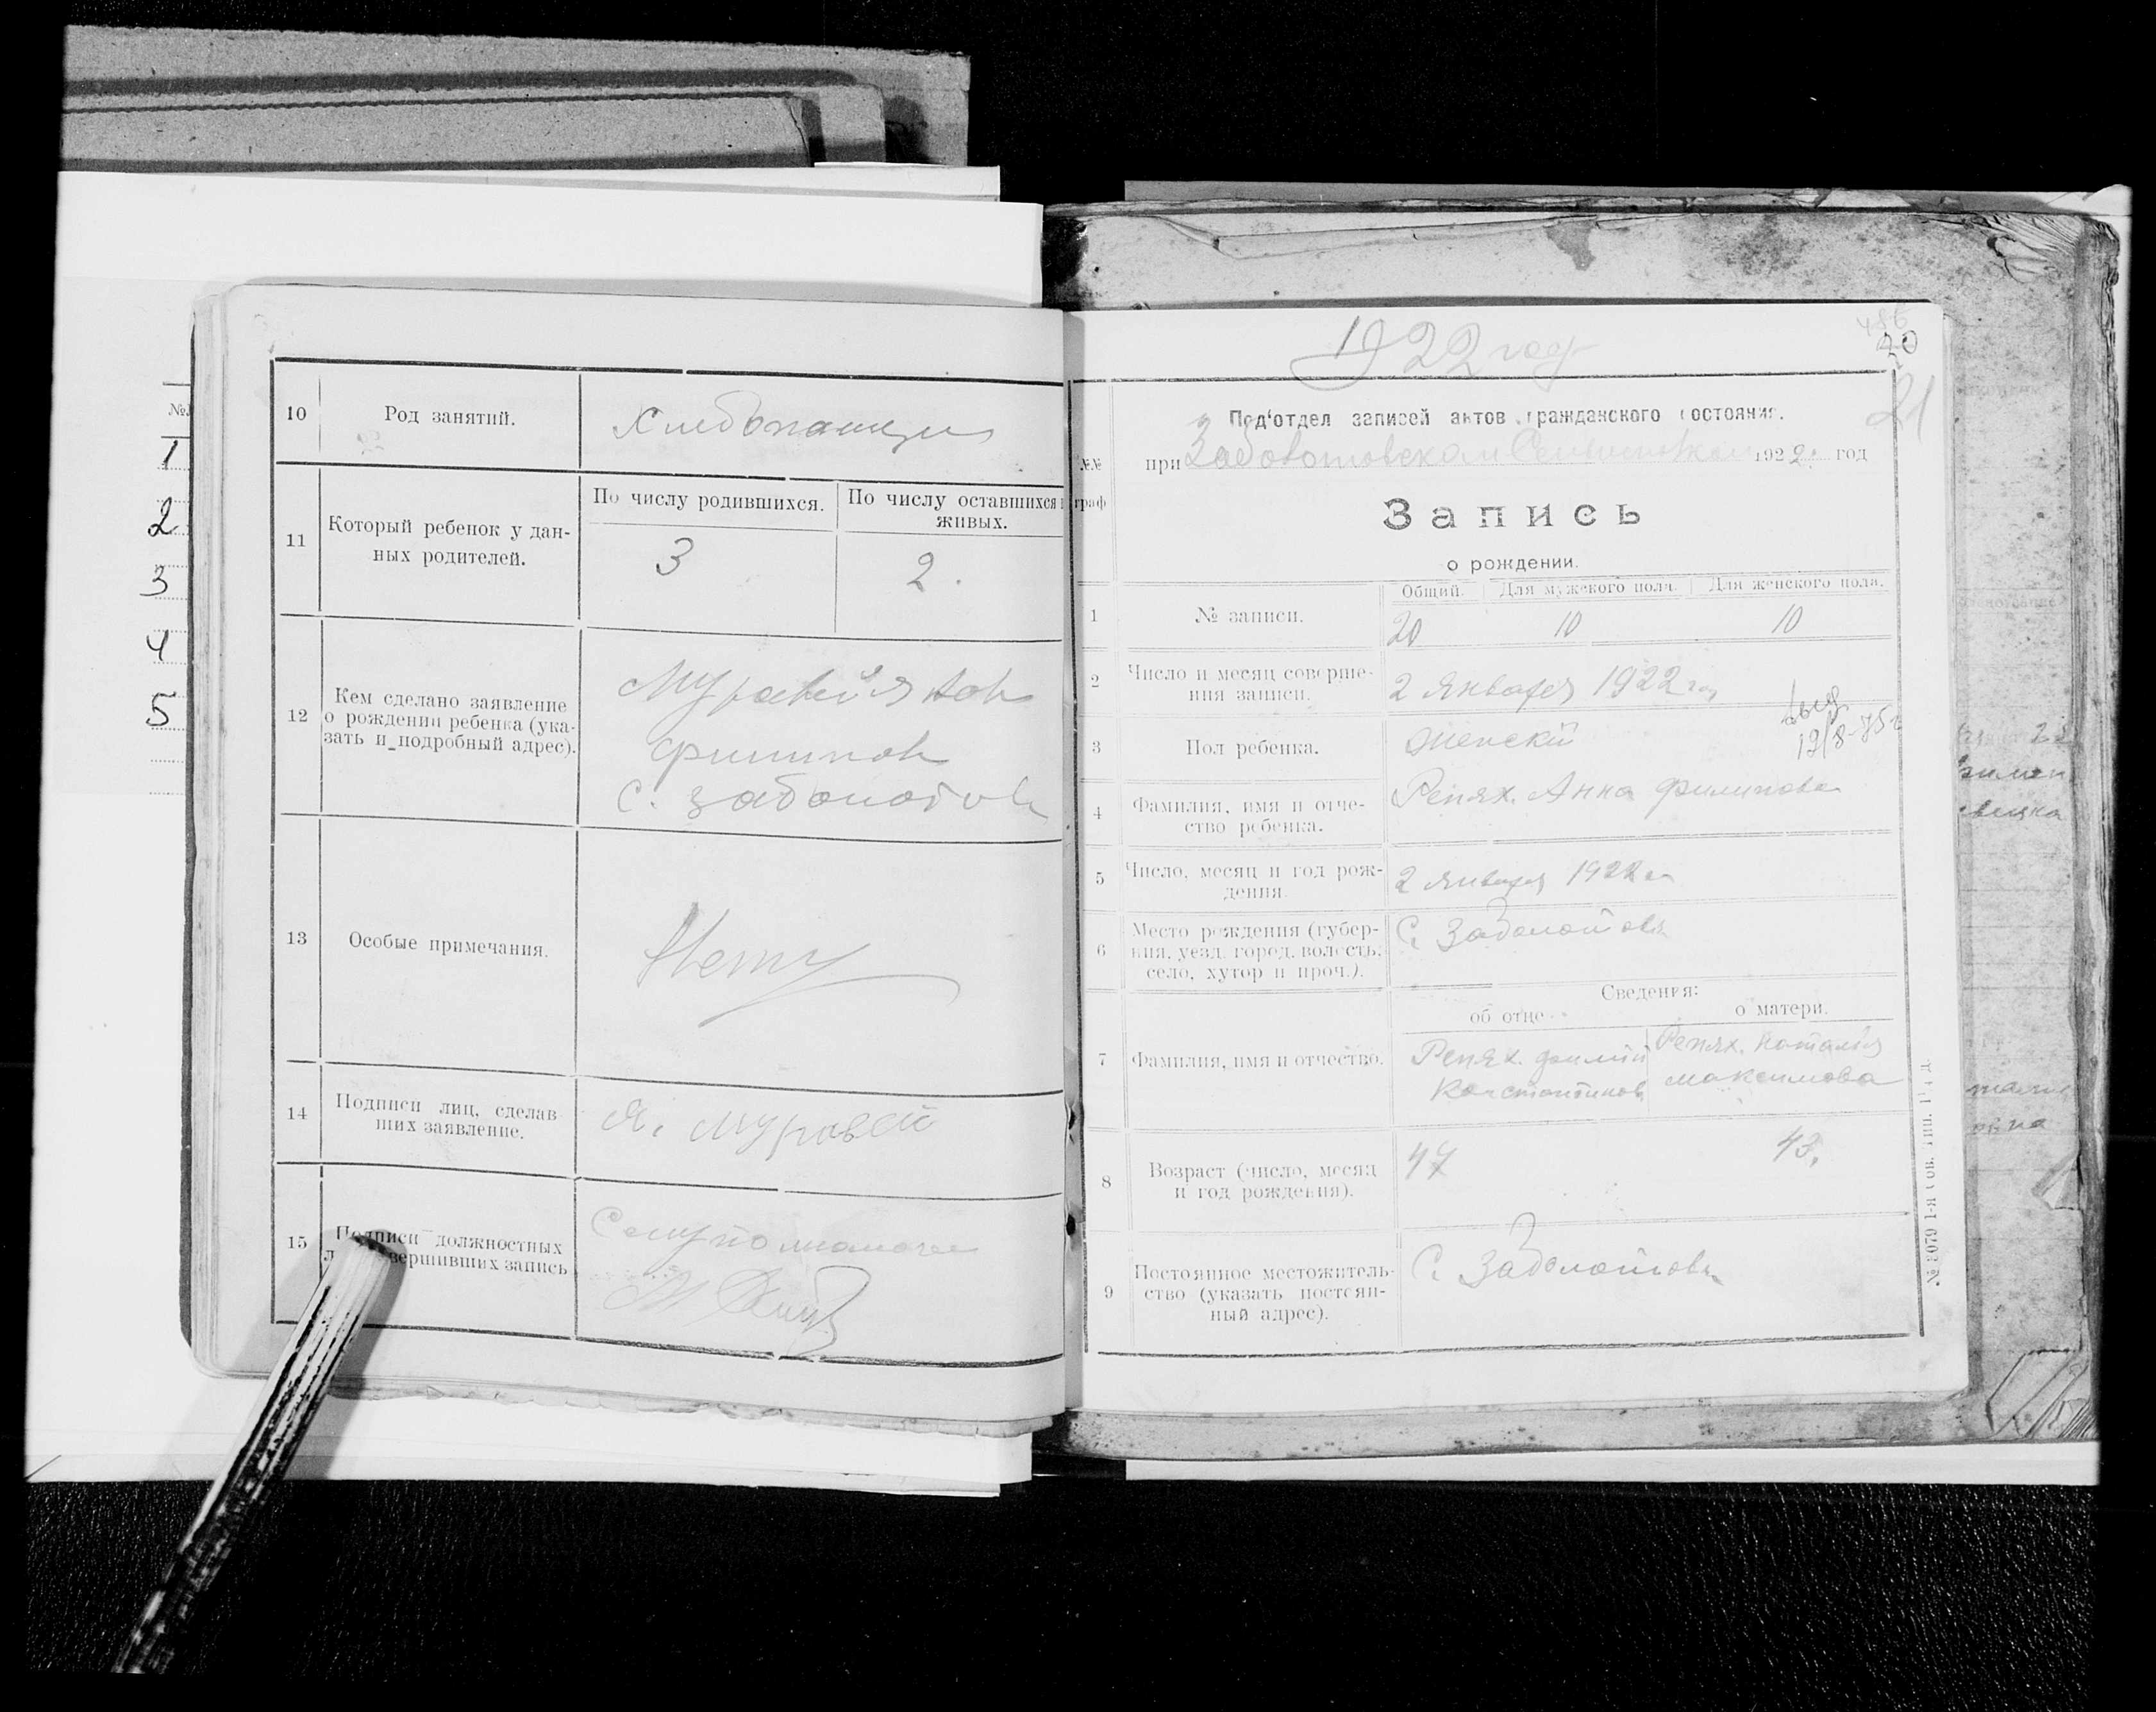 №№
1
2
3
4
5
10
Род занятий.
Хлебопашцы
11
Который ребенок у дан-
ных родителей.
По числу родившихся.
По числу оставшихся
живых.
3
2.
12
Кем сделано заявление
о рождении ребенка (ука-
зать и подробный адрес).
Филипов
с. Заболотов
13
Особые примечания.
Нету
14
Подписи лиц, сделав-
ших заявление.
Я. Муравей
15
Подписи должностных
вершивших запись
1922 год
486
20
21
Под'отдел записей актов гражданского состояния.
при Заболотовском 1922. год
№№
граф
Запись
о рождении.
Общий. Для мужского пола. Для женского пола.
1
№ записи.
20 10 10
2
Число и месяц соверше-
ния записи.
2 января 1922 го
3
Пол ребенка.
Женский
выд
19/8-75г
4
Фамилия, имя и отче-
ство ребенка.
Репях. Анна Филипова
5
Число, месяц и год рож-
дения.
2 января 1922 го
6
Место рождения (губер-
ния, уезд, город, волость,
село, хутор и проч.).
С. Заболотовк
Сведения:
об отце
о матери.
7
Фамилия, имя и отчество.
Репях. Филип
Константинов
Репях. Наталья
Максимова
8
Возраст (число, месяц
и год рождения).
47
43.
9
Постоянное местожитель-
ство (указать постоян-
ный адрес).
С. Заболотовк